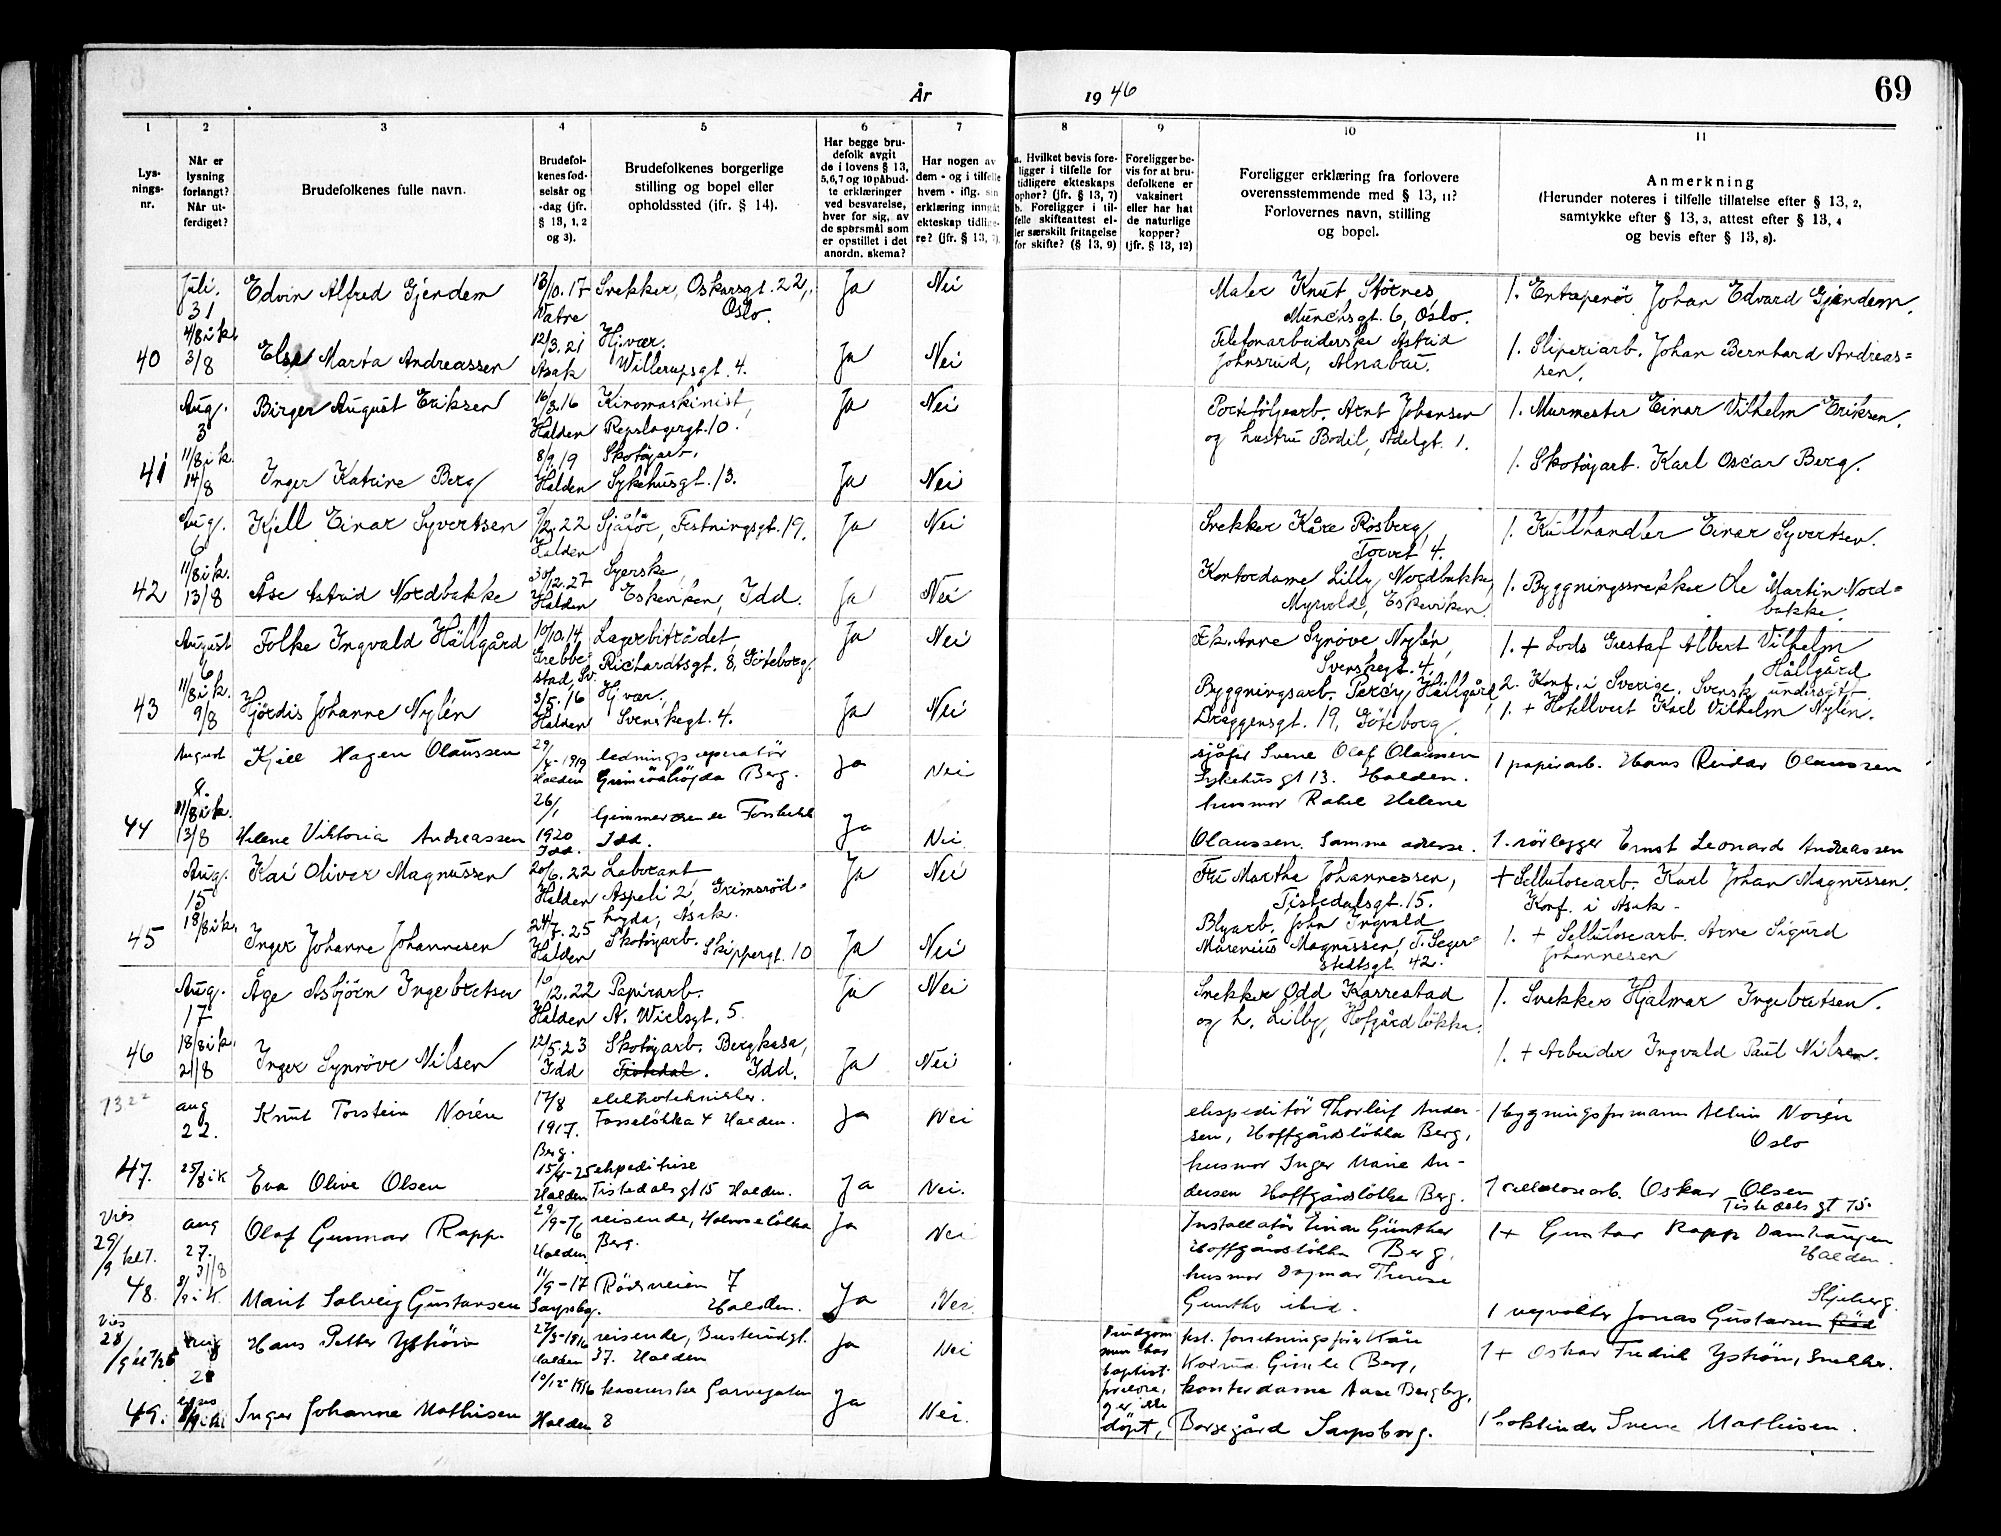 År 1946
69
1 2 3 4 5 6 7 8 9 10 11
Lys-
nings-
nr.
Når er
lysning
forlangt?
Når ut-
ferdiget?
Brudefolkenes fulle navn.
Brudefol-
kenes fød-
selsår og
-dag (jfr.
§ 13, 1, 2
og 3).
Brudefolkenes borgerlige
stilling og bopel eller
opholdssted (jfr. § 14).
Har begge bru-
defolk avgit
de i lovens § 13,
5,6,7 og 10 påbud-
te erklæringer
ved besvarelse,
hver for sig, av
de spørsmål som
er opstillet i det
anordn. skema?
Har nogen av
dem - og i tilfelle
hvem - iflg. sin
erklæring inngåt
ekteskap tidlige-
re? (jfr. § 13, 7).
a. Hvilket bevis fore-
ligger i tilfelle for
tidligere ekteskaps
ophør? (jfr. § 13, 7)
b. Foreligger i til-
felle skifteattest el-
ler særskilt fritagelse
for skifte? (§ 13, 9)
Foreligger be-
vis for at bru-
defolkene er
vaksinert
eller har hat
de naturlige
kopper?
(jfr. § 13, 12)
Foreligger erklæring fra forlovere
overensstemmende med § 13, 11?
Forlovernes navn, stilling
og bopel.
Anmerkning
(Herunder noteres i tilfelle tillatelse efter § 13, 2,
samtykke efter § 13, 3, attest efter § 13, 4
og bevis efter § 13, 8).
Juli. 31 Edvin Alfred Gjendem 13/10.17 Snekker, Oskarsgt. 22, Oslo. Ja Nei
Maler Knut Störnes,
Munchsgt. 6, Oslo.
1. Entreprenör Johan Edvard Gjendem.
40 4/8 i k. 3/8 Else Marta Andreassen 12/3.21 Asak Hj.vær. Willerupsgt. 4. Ja Nei
Telefonarbeiderske Astrid
Johnsrud, Alnabru.
1. Sliperiarb. Johan Bernhard Andreas=
sen.
Aug. 3 Birger August Eriksen 16/3.16 Halden Kinomaskinist, Repslagergt. 10. Ja Nei
Porteföljearb. Arnt Johansen
og hustru Bodil, Adelgt. 1.
1. Murmester Einar Vilhelm Eriksen.
41 11/8 i k. 14/8 Inger Katrine Berg 8/9.19 Halden Skotöyarb. Sykehusgt. 13. Ja Nei
1. Skotöyarb. Karl Oscar Berg.
Aug. 6 Kjell Einar Syvertsen 9/2.22 Halden Sjåför, Festningsgt. 19. Ja Nei
Snekker Kåre Rösberg,
Torvet 4.
1. Kullhandler Einar Syvertsen.
42 11/8 i k. 13/8 Åse Astrid Nordbakke 30/12.27 Halden Syerske Eskeviken, Idd. Ja Nei
Kontordame Lilly Nordbakke,
Myrvold, Eskeviken
1. Byggningssnekker Ole Martin Nord=
bakke.
August 6 Folke Ingvald Hällgård 10/10.14 Grebbe-
stad, Sv. Lagerbiträdet, Richardtsgt. 8, Göteborg. Ja Nei
Frk. Anne Synöve Nylén,
Svenskegt. 4,
1. + Lods Gustaf Albert Vilhelm
Hällgård
2. Konf. i Sverige. Svensk undersått.
43 11/8 i k. 9/8 Hjördis Johanne Nylén 3/5.16 Halden Hj.vær., Svenskegt. 4. Ja Nei
Byggningsarb. Percy Hällgård,
Draggensgt. 19, Göteborg.
1. + Hotellvert Karl Vilhelm Nylén.
August Kjell Hagen Olaussen 29/4-1919 Halden ledningsoperatör Grimsröhögda Berg. Ja Nei
sjåför Svene Olaf Olaussen
Sykehusgt 13. Halden.
husmor Rakel Helene
1 papirarb. Hans Reidar Olaussen
44 11/8 i k. 13/8 Helene Viktoria Andreassen 26/1 1920 Idd. Idd. Ja Nei.
Olaussen. Samme adresse.
1. rörlegger Ernst Leonard Andreassen
Aug. 15 Kai Oliver Magnussen 20/6.22 Halden Laborant Aspeli 2, Grimsröd=
högda, Asak. Ja Nei
Fru Martha Johannessen,
Tistedalsgt. 15.
+ Cellulosearb. Karl Johan Magnussen.
Konf. i Asak -
45 18/8 i k. Inger Johanne Johannesen 24/7.25 Halden Skotöyarb. Skippergt. 10 Ja Nei
Blyarb. John Ingvald
Marenius Magnussen, T. Seger=
stedtsgt. 42.
1. + Cellulosearb. Arne Sigurd
Johannesen
Aug. 17 Åge Asbjörn Ingebretsen 10/12.22 Halden Papirarb. A. Wielsgt. 5. Ja Nei
Snekker Odd Karrestad
og h. Lilly, Hofgårdlökka.
1. Snekker Hjalmar Ingebretsen.
46 18/8 i k. 21/8 Inger Synnöve Nilsen 12/5.23 Idd Skotöyarb. Bergkasa, Tistedal. Idd. Ja Nei
1. + Arbeider Ingvald Paul Nilsen.
aug 22. Knut Torstein Norén 17/8 1917. Berg. elektrotekniker. Fosselökka 4 Halden. Ja Nei
ekspeditör Thorleif Ander-
sen, Hoffgårdslökka Berg,
1 bygningsformann Albin Norén
Oslo
47. 25/8 i k Eva Olive Olsen 15/4-25 Halden ekspeditrise Tistedalsgt 15 Halden. Ja Nei.
husmor Inger Marie An-
dersen Hoffgårdslökka Berg.
1 cellulosearb. Oskar Olsen
Tistedalsgt 15.
Vies 29/9 kl 7. aug 27. 31/8 Olaf Gunnar Rapp. 29/9-16 Halden reisende, Berg. Ja Nei
Installatör Einar Günther
Hoffgårdslökka Berg,
1 + Gustav Rapp Damhaugen
Halden.
48. 8/9 i k. Marit Solveig Gustavsen 11/9-17 Sarpsbg. Rödsveien 7 Halden. Ja Nei.
husmor Dagmar Therese
Gunther ibid.
Skjeberg.
1 Jonas Gustavsen
Vies 28/9 aug 28 Hans Petter Yström 27/3-1916 Halden reisende, Buskrudgt. 37. Halden Ja Nei
Brudgom
men har
baptist
foreldre,
og er ikke
döpt,
Gimle Berg,
1 + Oskar Fredrik Yström, Snekker.
49. Inger Johanne Mathisen 10/12-1916 Halden kasererske Garvegaten 8 Ja Nei.
kontordame Aase Bergby,
Borregård Sarpsborg.
1 bokbinder Svene Mathisen.